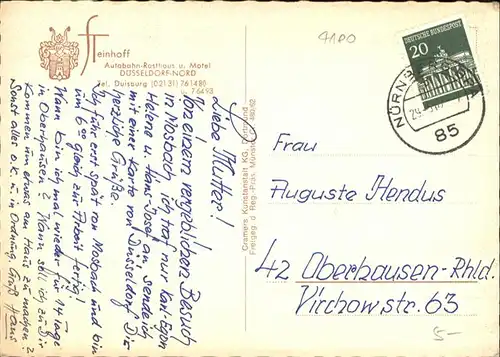 Steinhoff
Autobahn-Rasthaus u. Motel
DÜSSELDORF-NORD
Tel. Duisburg (02131) 761480
u. 76493
4100
20
DEUTSCHE BUNDESPOST
NÜRNB
85
Liebe Mutter!
Von einem vergeblichen Besuch
in Mosbach, ich traf nur Karl Egon
Helene u. Hans-Jose an, sende ich
mit einer Karte von Düsseldorf Dir
herzliche Grüße.
Ich fuhr erst spät von Mosbach und bin
um 6 00 gleich zur Arbeit fertig!
Wann bin ich mal wieder für 14 Tage
in Oberhausen? Wann soll ich zu Dir
kommen um etwas am Haus zu machen?
Sonst alles o.k. u. in Ordnung, Gruß Hans
Cramers Kunstanstalt KG, Dortmund
Freigeg. d. Reg.-Präs. Münster 480/62
Frau
Auguste Hendus
42 Oberhausen-Rhld.
Virchowstr. 63
5-